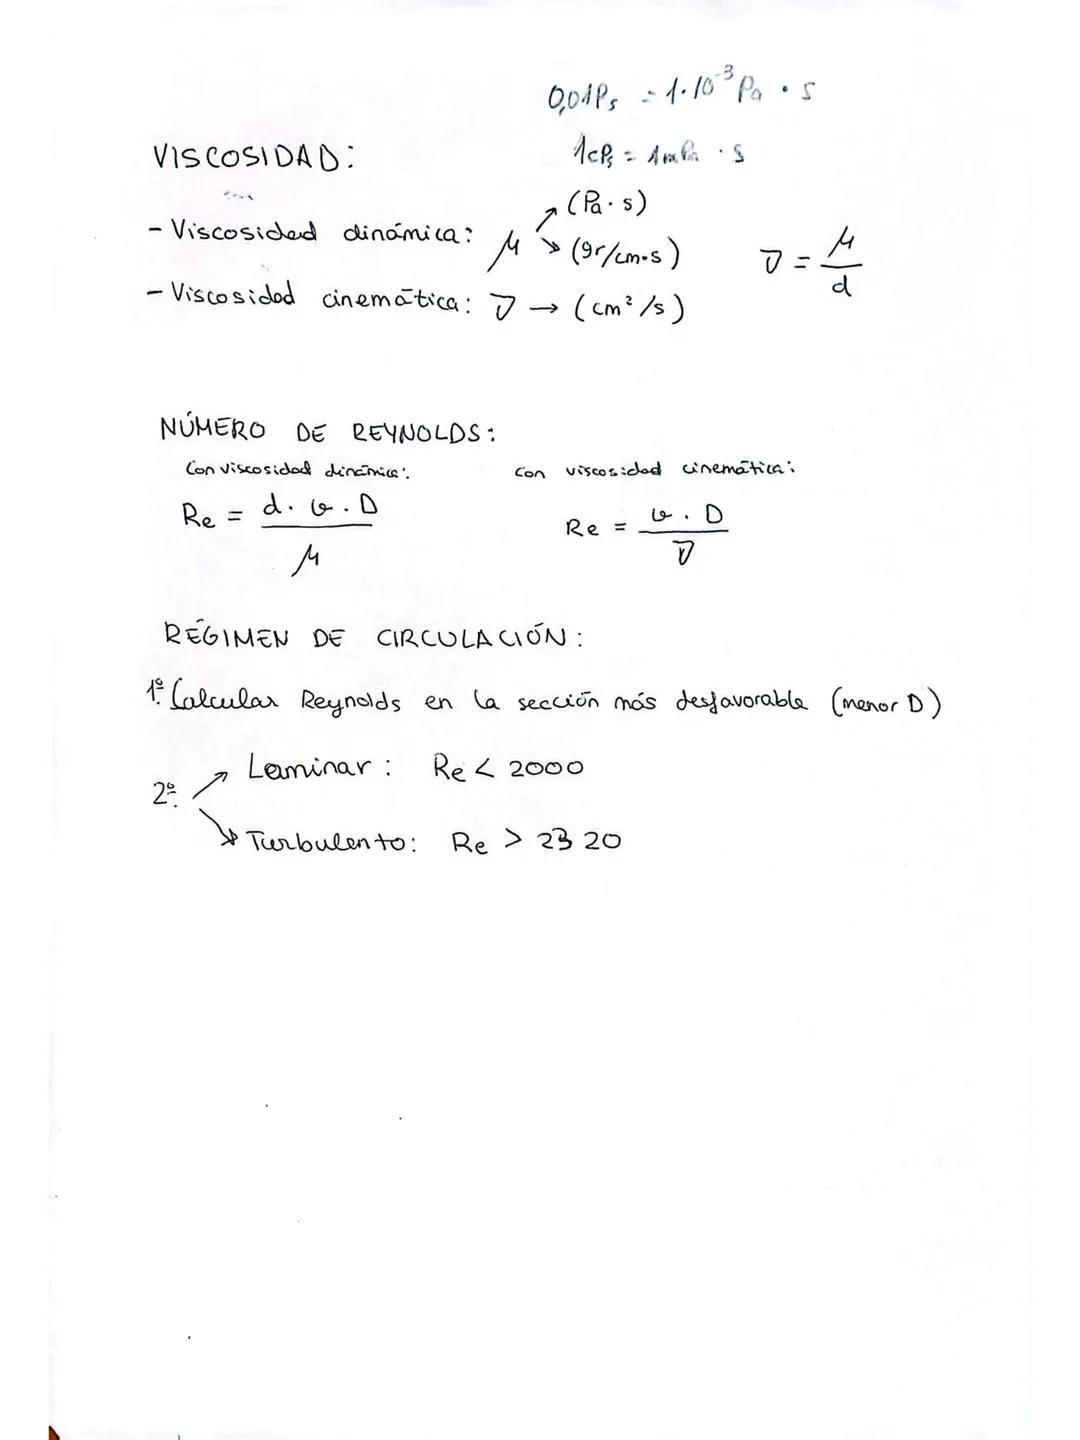 0,01Ps = 1·10⁻³ Pa · s
VISCOSIDAD:
1cPs = 1mPa · s
- Viscosidad dinámica: μ ↗ (Pa·s)
↘ (gr/cm·s)
ν̄ = μ/d
- Viscosidad cinemática: ν̄ → (cm²/s)
NÚMERO DE REYNOLDS:
Con viscosidad dinámica:
con viscosidad cinemática:
Re = d · v · D / μ
Re = v · D / ν̄
RÉGIMEN DE CIRCULACIÓN:
1º. Calcular Reynolds en la sección más desfavorable (menor D)
2º. ↗ Laminar: Re < 2000
↘ Turbulento: Re > 2320